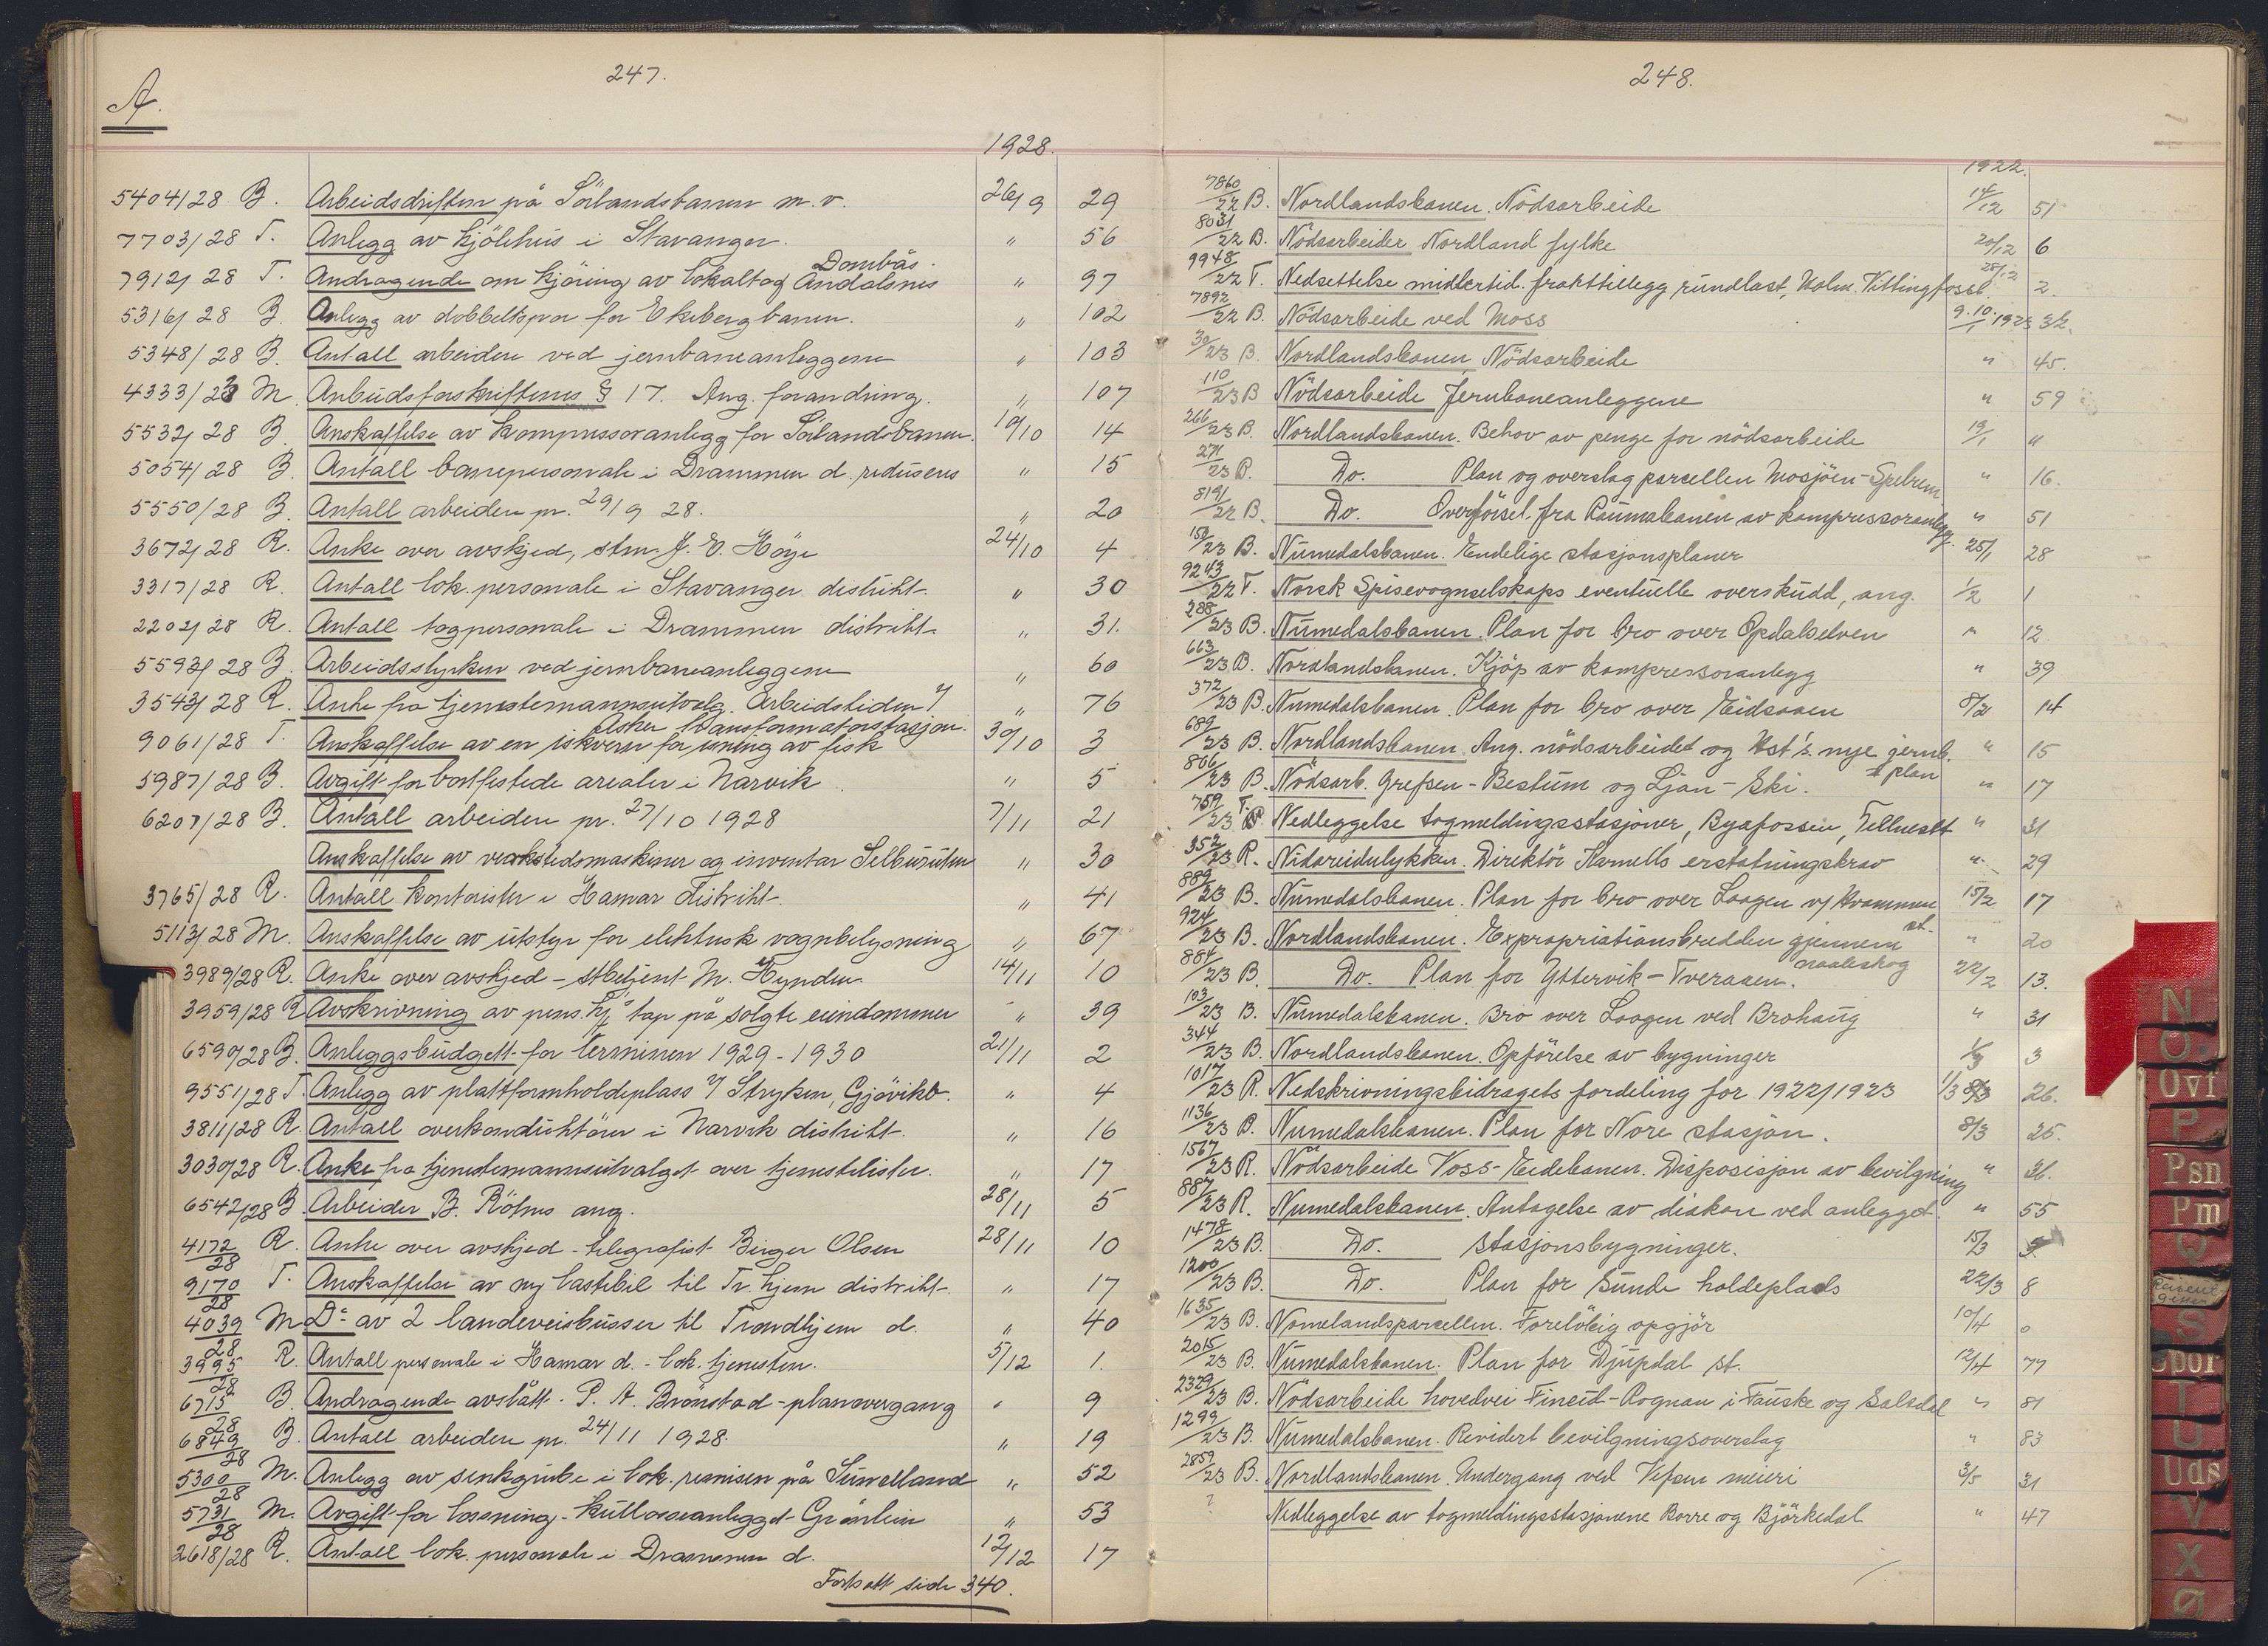 247.
A.
1928.
5404/28 B. Arbeidsdriften på Sörlandsbanen m. v. 26/9 29
7703/28 T. Anlegg av kjölehus i Stavanger. " 56
Dombås
7912/28 T. Andragende om kjöring av lokaltog Åndalsnes " 97
5316/28 B. Anlegg av dobbeltspor for Ekebergbanen. " 102
5348/28 B. Antall arbeidere ved jernbaneanleggene " 103
4333/28 M. Anbudsforskriftenes § 17. Ang. forandring. " 107
5532/28 B. Anskaffelse av kompressoranlegg for Sörlandsbanen. 10/10 14
5054/28 B. Antall banepersonale i Drammen d. reduseres " 15
5550/28 B. Antall arbeidere pr. 29/9 28. " 20
3672/28 R. Anke over avskjed, stm. J. E. Höye 24/10 4
3317/28 R. Antall lok. personale i Stavanger distrikt. " 30
2202/28 R. Antall togpersonale i Drammen distrikt. " 31.
5593/28 B. Arbeidsstyrken ved jernbaneanleggene " 60
3543/28 R. Anke fra tjenestemannsutvalg. Arbeidstiden v/ " 76
Asker transformatorstasjon.
9061/28 T. Anskaffelse av en iskvern for ising av fisk 30/10 3
5987/28 B. Avgift for bortfestede arealer i Narvik " 5
6207/28 B. Antall arbeidere pr. 27/10 1928 7/11 21
Anskaffelse av verkstedsmaskiner og inventar Selburuten " 30
3765/28 R. Antall kontorister i Hamar distrikt. " 41
5113/28 M. Anskaffelse av utstyr for elektrisk vognbelysning " 67
3989/28 R. Anke over avskjed - stbetjent M. Hynden 14/11 10
3959/28 R. Avskrivning av pens. kj. tap på solgte eiendommer " 39
6590/28 B. Anleggsbudgett for terminen 1929-1930 21/11 2
9551/28 T. Anlegg av plattformholdeplass v/ Stryken, Gjövikb. " 4
3811/28 R. Antall overkonduktörer i Narvik distrikt. " 16
3030/28 R. Anke fra tjenestemannsutvalget over tjenestelister. " 17
6542/28 B. Arbeider B. Röhms ang. 28/11 5
4172/28 R. Anke over avskjed - telegrafist Birger Olsen 28/11 10
9170/28 T. Anskaffelse av ny lastebil til Tr.hjem distrikt. " 17
4039/28 M. Do av 2 landeveisbusser til Trondhjem d. " 40
3995/28 R. Antall personale i Hamar d. - lok. tjenesten. 5/12 1.
6715/28 B. Andragende avslått. P. A. Brönstad - planovergang " 9
6849/28 B. Antall arbeidere pr. 24/11 1928. " 19
5300/28 M. Anlegg av senkgrube i lok. remisen på Sunnelland " 52
5731/28 M. Avgift for lossning - kullosseanlegget Grönlien " 53
2618/28 R. Antall lok. personale i Drammen d. 12/12 17
Fortsatt side 340.
248.
1922.
7860/22 B. Nordlandsbanen. Nödsarbeide 14/12 51
8031/22 B. Nödsarbeider Nordland fylke 20/12 6
9948/22 T. Nedsettelse midlertid. frakttillegg rundlast, Holm. Vittingfossb. 28/12 2.
7892/22 B. Nödsarbeide ved Moss 9.10./1 1923 32.
30/23 B. Nordlandsbanen, Nödsarbeide " 45.
110/23 B Nödsarbeide Jernbaneanleggene " 59
266/23 B. Nordlandsbanen. Behov av penge for nödsarbeide 19/1 "
271/23 B. Do. Plan og overslag parcellen Mosjöen- " 16.
8191/22 B. Do. Overförsel fra Raumabanen av kompressoranlegg. " 51
150/23 B. Numedalsbanen. Endelige stasjonsplaner 25/1 28
9243/22 T. Norsk Spisevognselskaps eventuelle overskudd, ang. 1/2 1
288/23 B. Numedalsbanen. Plan for bro over Opdalselven " 12
663/23 B. Nordlandsbanen. Kjöp av kompressoranlegg " 39
372/23 B. Numedalsbanen. Plan for bro over Eidsaaen 8/2 14
689/23 B. Nordlandsbanen. Ang. nödsarbeidet og Hst's nye jernb. " 15
plan
806/23 B. Nödsarb. Grefsen-Bestum og Ljan-Ski. " 17
759/23 T. Nedleggelse togmeldingsstasjoner, Byafossen, " 31
352/23 R. Nidareidulykken. Direktör Harnells erstatningskrav " 29
889/23 B. Numedalsbanen. Plan for bro over Laagen v/ Kvammen 15/2 17
st.
924/23 B. Nordlandsbanen. Expropriationsbredden gjennem " 20
naaleskog
884/23 B. Do. Plan for Yttervik-Tveraaen. 22/2 13.
103/23 B. Numedalsbanen. Bro over Laagen ved Brohaug " 31
344/23 B. Nordlandsbanen. Opförelse av bygninger 1/3 3
1017/23 R. Nedskrivningsbidragets fordeling for 1922/1923 1/3 8/3 26.
1136/23 B. Numedalsbanen. Plan for Nore stasjon. 8/3 25.
1567/23 R. Nödsarbeide Voss-Eidebanen. Disposisjon av bevilgning " 36.
887/23 R. Numedalsbanen. Antagelse av diakon ved anlegget. " 55
1478/23 B. Do. Stasjonsbygninger. 15/3
1200/23 B. Do. Plan for Sunde holdeplads 22/3 8
1635/23 B. Nomelandsparcellen. Forelöbig opgjör 10/4 0
2015/23 B. Numedalsbanen. Plan for Djupdal st. 12/4 77
2329/23 B. Nödsarbeide hovedvei Fineid-Rognan i Fauske og Saltdal " 81
1299/23 B. Numedalsbanen. Revidert bevilgningsoverslag " 83
2859/23 B. Nordlandsbanen. Undergang ved Vefsen meieri 3/5 31
? Nedleggelse av togmeldingsstasjonene Borre og Björkedal " 47
N
O
Ovf
P
Psn
Pm
Q
S
Spor
T
U
Uds
V
X
Ø